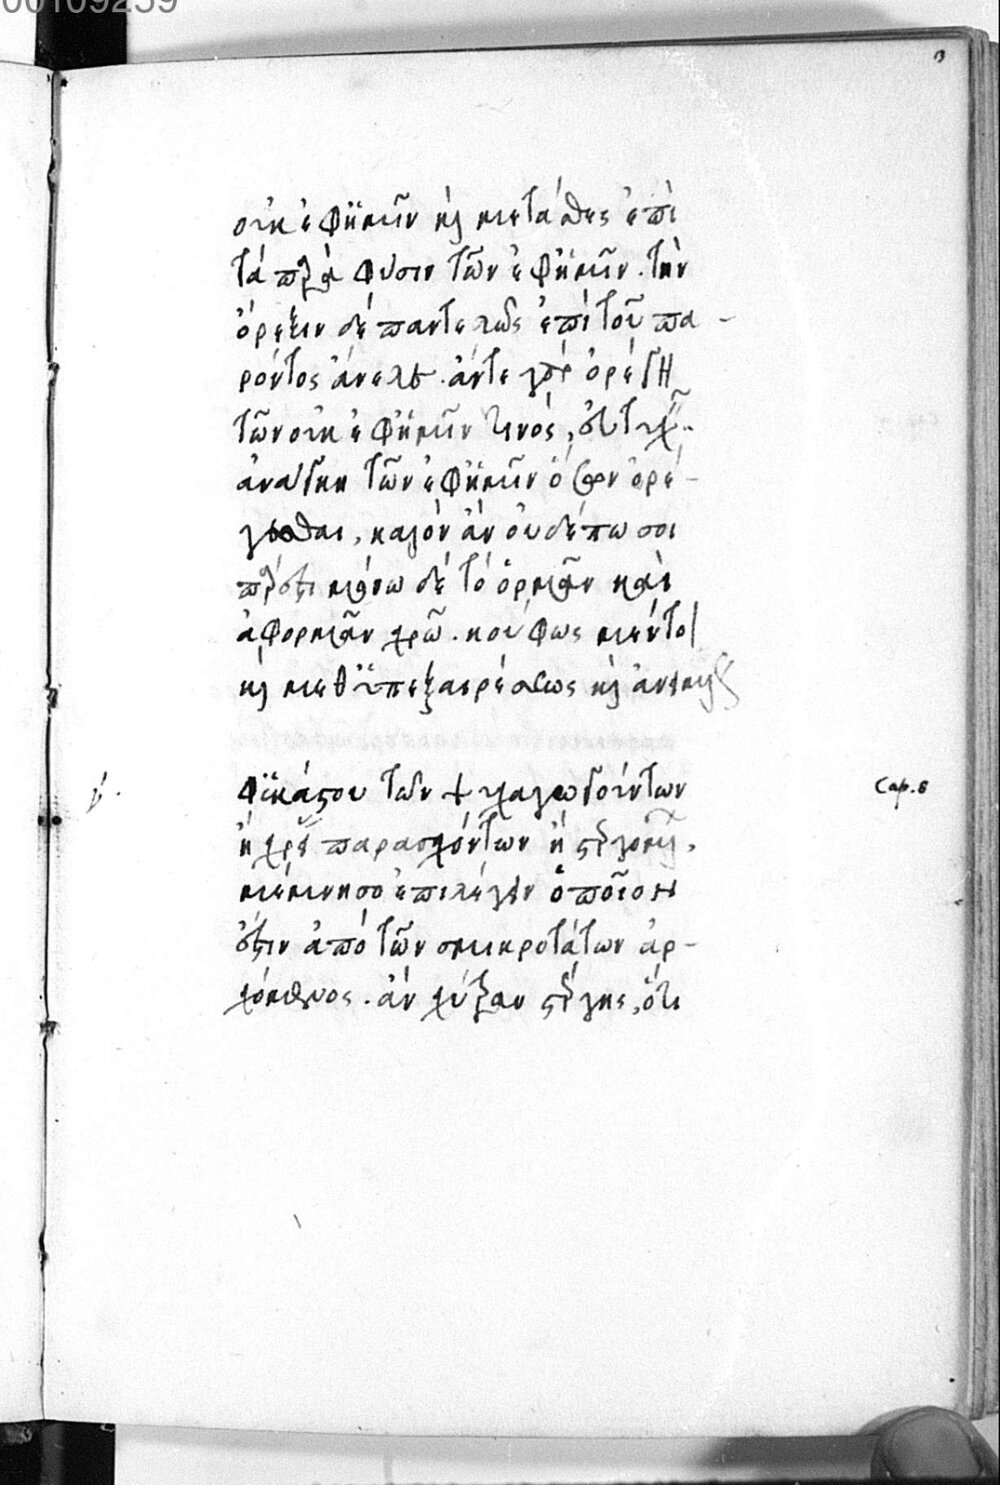 00109259
οὐκ ἐφ' ἡμῖν καὶ μετάθες ἐπὶ
τὰ παρὰ φύσιν τῶν ἐφ' ἡμῖν. τὴν
ὄρεξιν δὲ παντελῶς ἐπὶ τοῦ πα-
ρόντος ἄνελε. ἄντε γὰρ ὀρέγῃ
τῶν οὐκ ἐφ' ἡμῖν τινός, ἀτυχεῖν
ἀνάγκη τῶν ἐφ' ἡμῖν ὅσων ὀρέ-
γεσθαι, καλὸν ἂν οὐδέπω σοι
πάρεστι μόνῳ δὲ τὸ ὁρμᾶν καὶ
ἀφορμᾶν χρῶ. κούφως μέντοι
καὶ μεθ' ὑπεξαιρέσεως καὶ ἀνειμένως
ἐφ' ἑκάστου τῶν ψυχαγωγούντων
ἢ χρείας παρασχόντων ἢ στεργομένων,
μέμνησο ἐπιλέγειν ὁποῖόν
ἐστιν ἀπὸ τῶν σμικροτάτων ἀρ-
χόμενος. ἂν χύτραν στέργῃς, ὅτι
Cap. 8